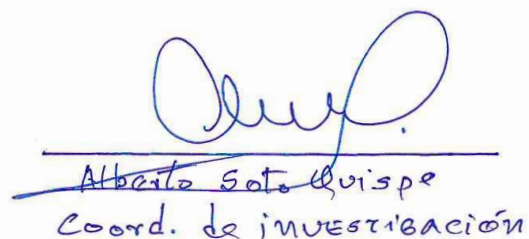 Alberto Soto Quispe
Coord. de investigación